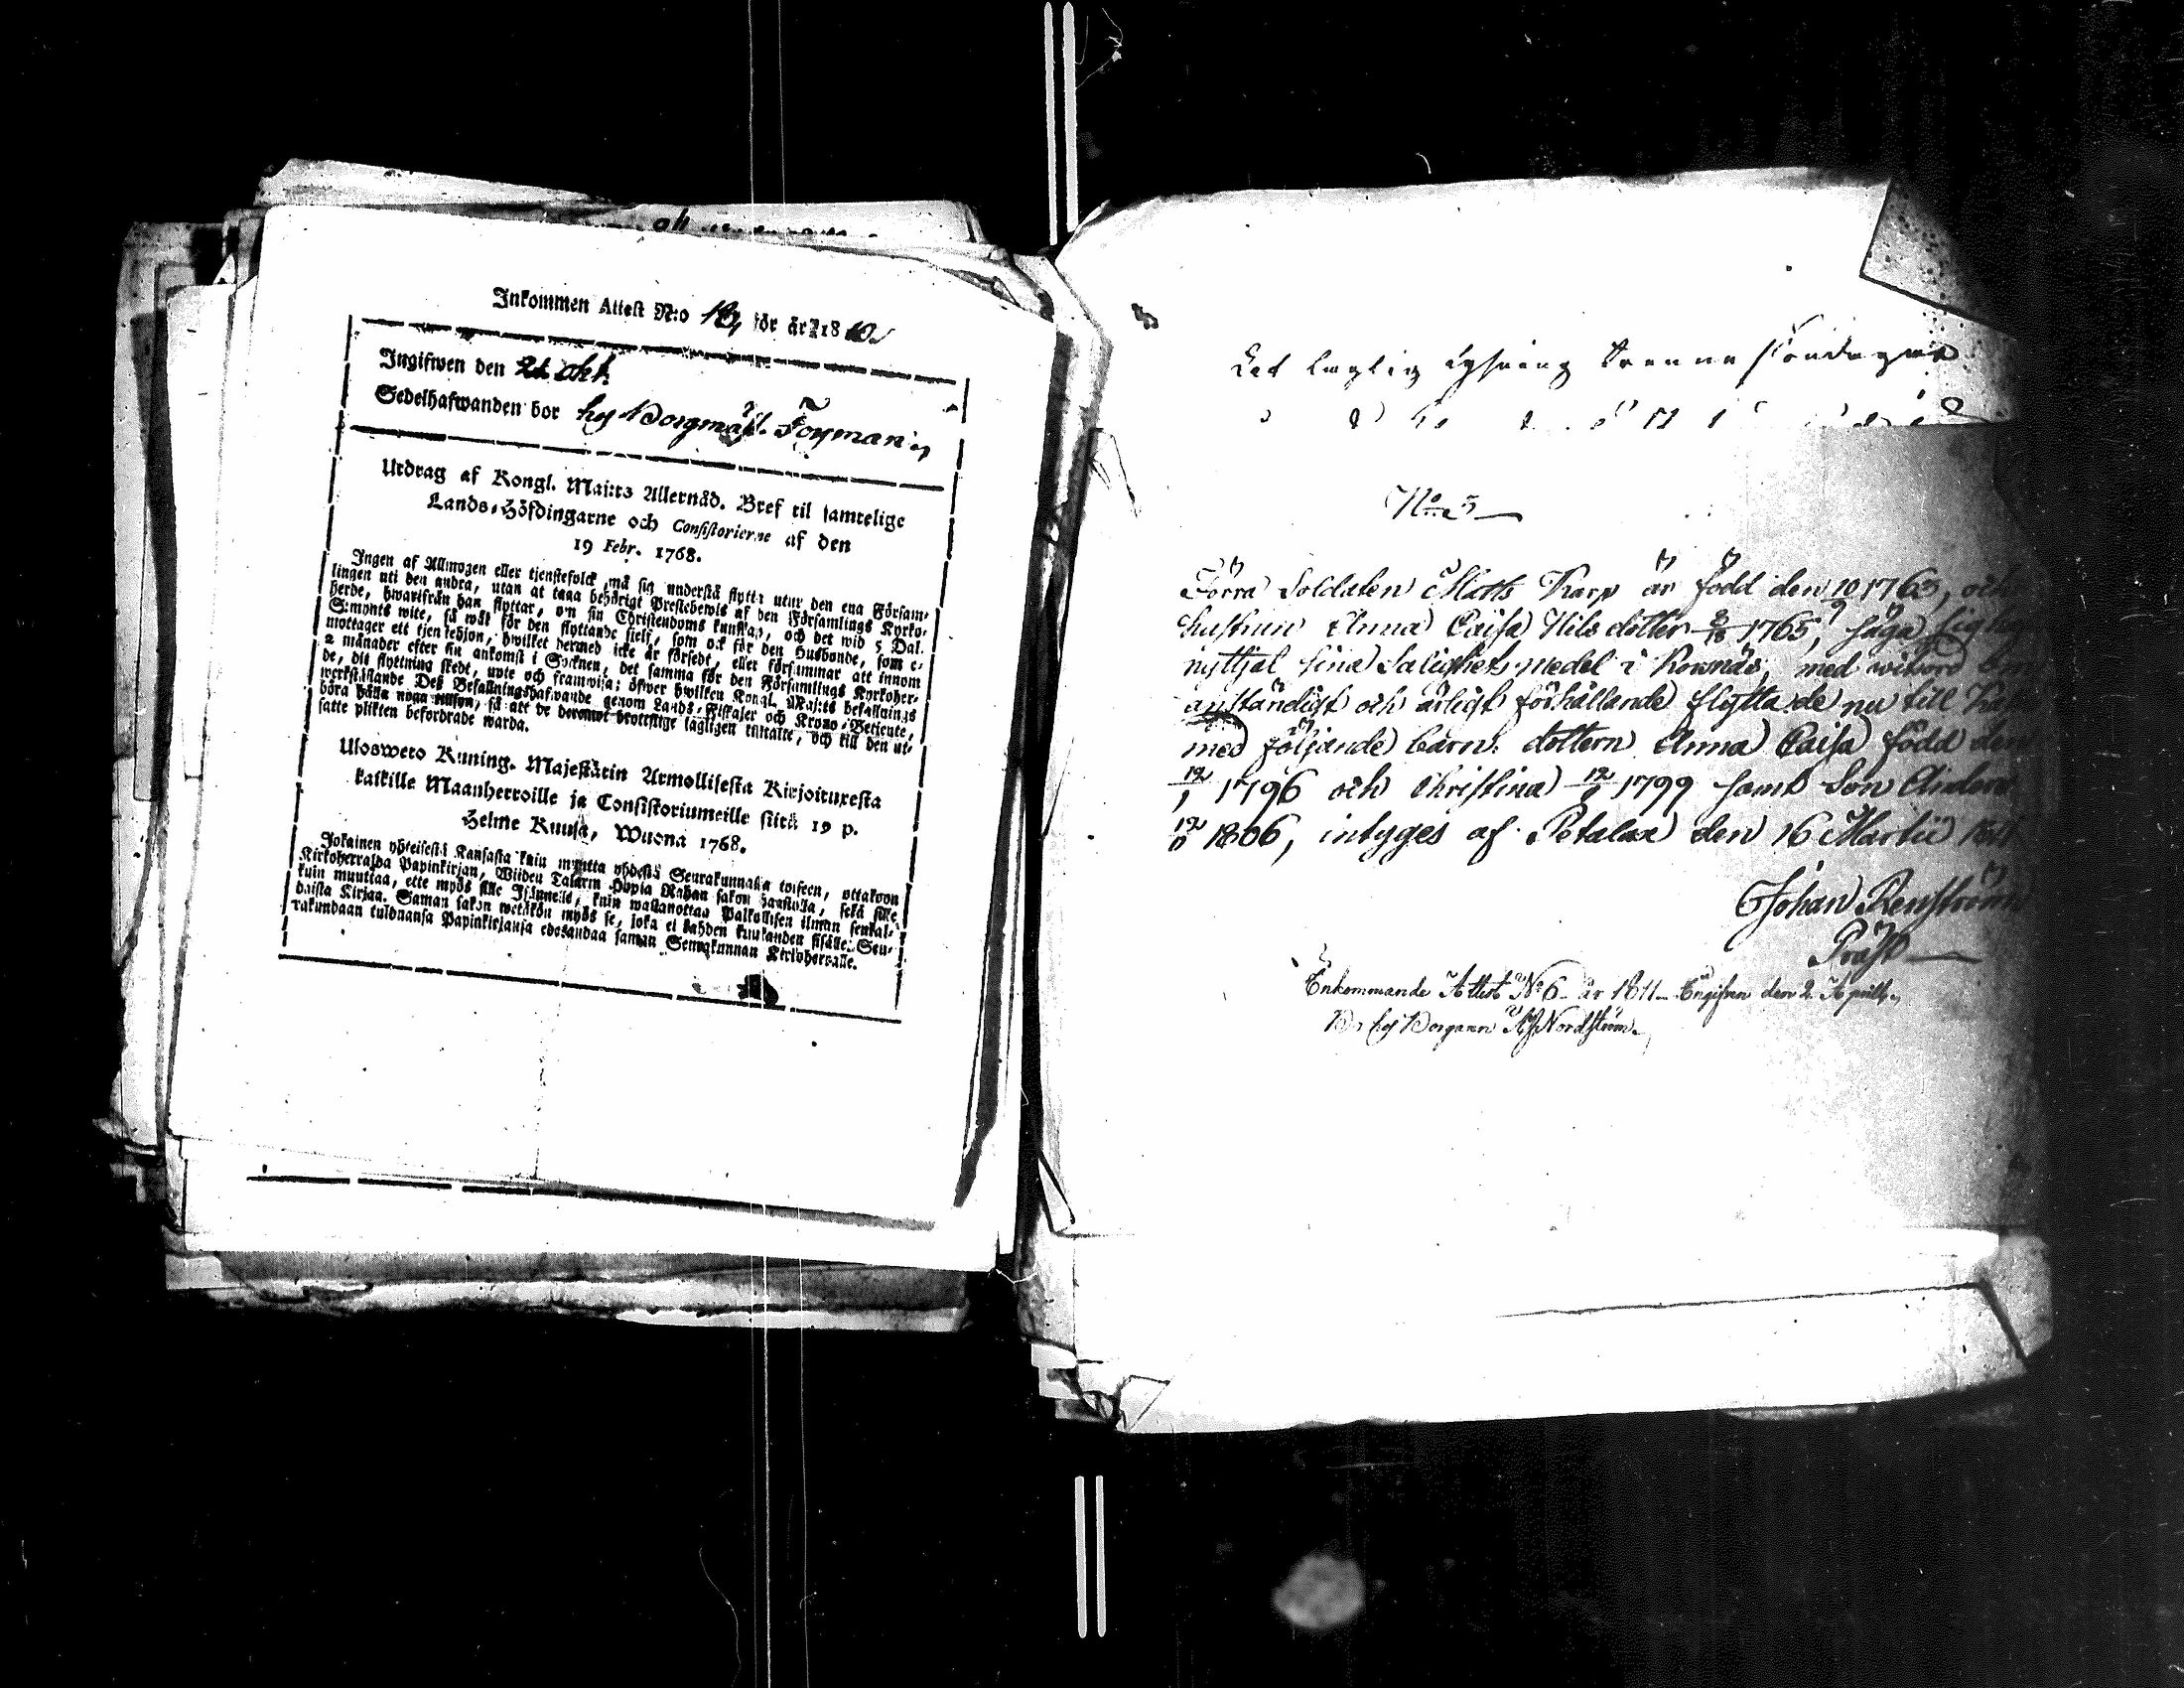 Inkommen Attest N:o för år 1810.
Ingifwen den 21 Oktr.
Sedelhafwanden bor hos Borgmäst. Forsman
Utdrag af Kongl. Maj:ts Allernåd. Bref til samtelige
Lands-Höfdingarne och Consistorierne af den
19 Febr. 1768.
Ingen af Allmogen eller tjenstefolck må sig understå flytta utur den ena Försam-
lingen uti den andra, utan at taga behörigt Prestebewis af den Församlings Kyrko-
herde, hwarifrån han flyttar, om sin Christendoms kunskap, och det wid 5 Dal.
S:mynts wite, så wäl för den flyttande sjelf, som ock för den Husbonde, som e-
mottager ett tjenstehjon, hwilket hermed icke är försedt, eller försummar att innom
2 månader efter sin ankomst i Socknen, det samma för den Församlings Kyrkoher-
de, dit flyttning skedt, upte och framwisa; öfwer hwilken Kongl. Maj:ts befallnings
werkställande Deß Befallningshafwande genom Lands-Fiskaler och Krono-Betjente,
böra hålla noga tillsyn, så att de deremot brottslige lagligen tilltalte, och till den ut-
satte plikten befordrade warda.
Ulosweto Kuning. Majestätin Armollisesta Kirjoituxesta
kaikille Maanherroille ja Consistoriumeille siitä 19 p.
Helme Kuusa, Wuona 1768.
Jokainen yhteisestä Kansasta kuin muutta yhdestä Seurakunnasta toiseen, ottakoon
Kirkoherralda Papinkirjan, Wiiden Talarin Hopia Rahan sakon haastolla, sekä sille
kuin muuttaa, ette myös sille Isännelle, kuin wastanottaa Palkollisen ilman senkal-
daista Kirjaa. Saman sakon wetäkön myös se, joka ei kahden kuukauden sisälle Seu-
rakundaan tulduansa Papinkirjansa edesandaa saman Seurakunnan Kirkoherralle.
Let laglig lysning trenne söndagar
No 3
Förra Soldaten Matts Karp är född den 10/9 1763, och
hustrun Anna Caisa Nils dotter 1765, säga sig
nyttjat sina Salighets medel i Kownäs, med witsord
anständigt och ärligt förhållande flytta de nu till
med följande barn: dottern Anna Caisa född den
12/1 1796 och Christina 1799 samt Son
1806, intyges af Petalax den 16 Martii
Johan Renström
Präst
Inkommande Attest No 6 år 1811 Ingifven den 2 Aprill.
Bor hos Borgaren Nordström.